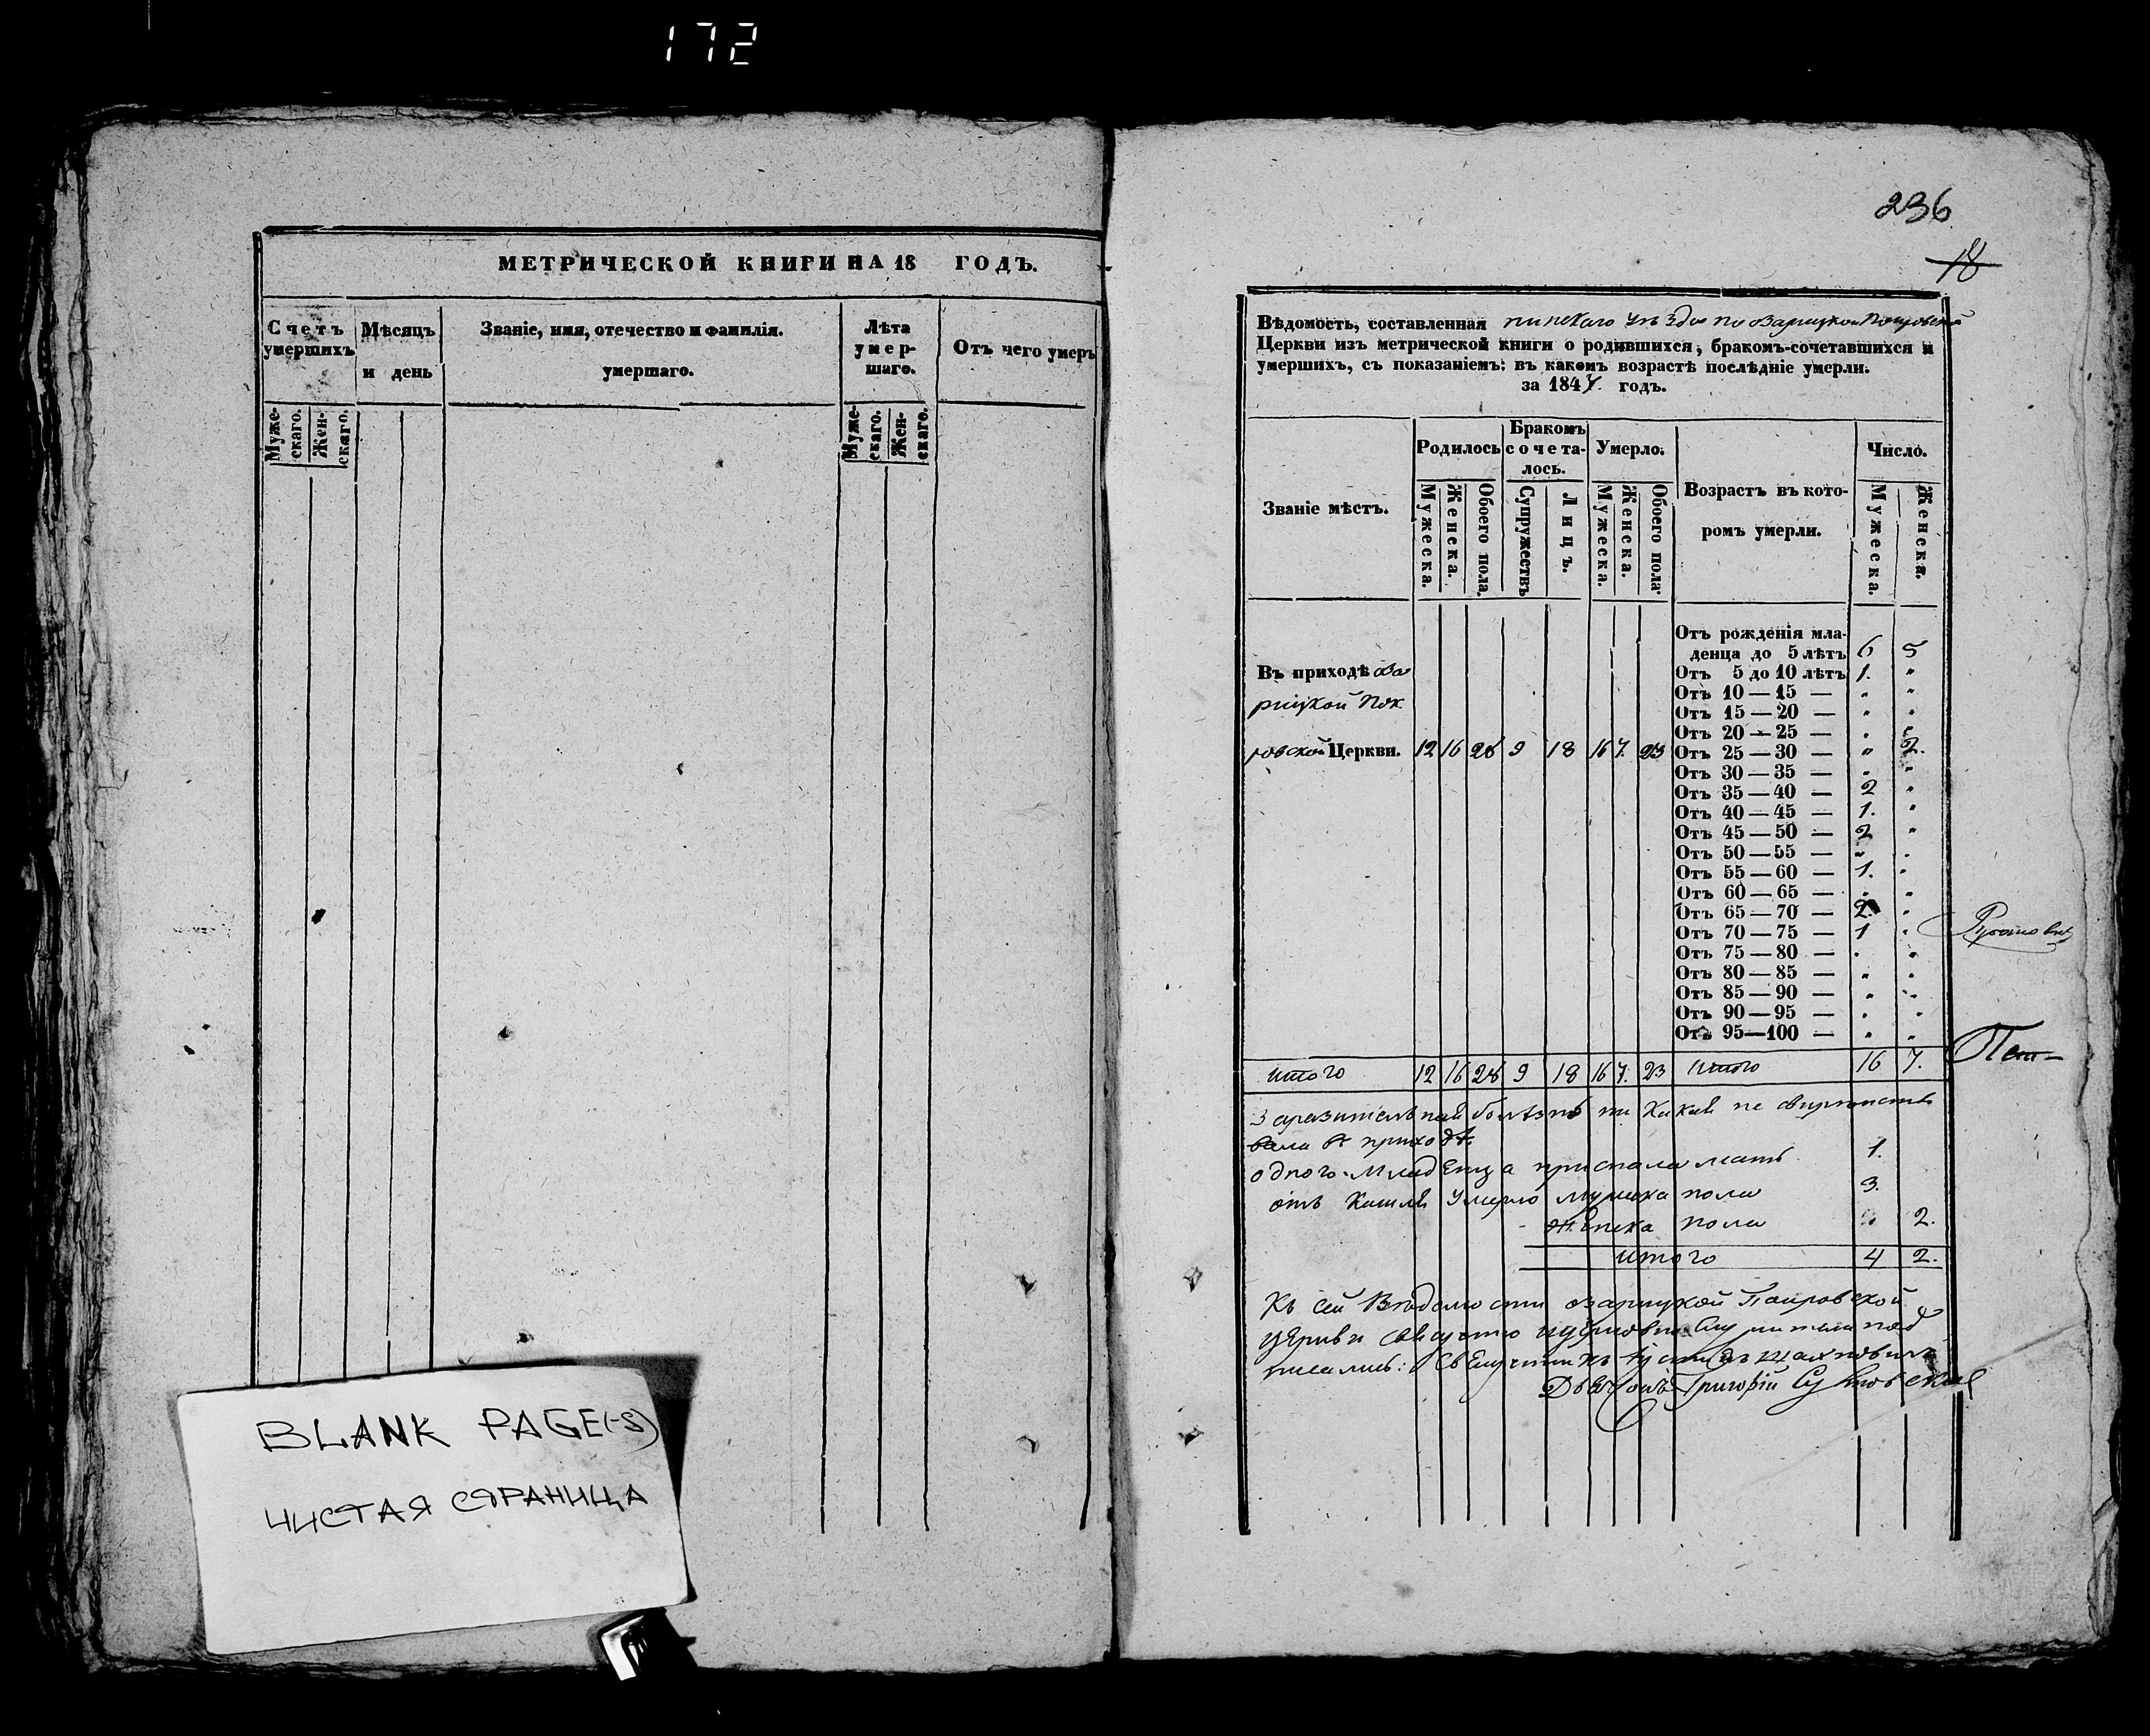 172
МЕТРИЧЕСКОЙ КНИГИ НА 18 ГОДЪ.
Счетъ умершихъ
Мужескаго.
Женскаго.
Мѣсяцъ и день
Званіе, имя, отечество и фамилія.
умершаго.
Лѣта умершаго.
Мужескаго.
Женскаго.
Отъ чего умеръ
BLANK PAGE(-S)
ЧИСТАЯ СТРАНИЦА
236
18
Вѣдомость, составленная пинскаго уѣзда по
Церкви изъ метрической книги о родившихся, бракомъ-сочетавшихся и
умершихъ, съ показаніемъ: въ какомъ возрастѣ послѣдніе умерли.
за 1847. годъ.
Званіе мѣстъ.
Родилось
Мужеска.
Женска.
Обоего пола.
Бракомъ сочеталось.
Супружествъ
Лицъ.
Умерло.
Мужеска.
Женска.
Обоего пола
Возрастъ въ которомъ умерли.
Число.
Мужеска.
Женска.
Отъ рожденія мла-
денца до 5 лѣтъ 6 5
Въ приходѣ
Отъ 5 до 10 лѣтъ 1. "
Отъ 10 — 15 — " "
Отъ 15 — 20 — " "
Отъ 20 — 25 — " "
ровской Церкви. 12 16 28 9 18 16 7. 23
Отъ 25 — 30 — " 2.
Отъ 30 — 35 — " "
Отъ 35 — 40 — 2 "
Отъ 40 — 45 — 1. "
Отъ 45 — 50 — 2 "
Отъ 50 — 55 — " "
Отъ 55 — 60 — 1. "
Отъ 60 — 65 — " "
Отъ 65 — 70 — 2. "
Отъ 70 — 75 — 1 "
Отъ 75 — 80 — " "
Отъ 80 — 85 — " "
Отъ 85 — 90 — " "
Отъ 90 — 95 — " "
Отъ 95—100 — " "
итого 12 16 28 9 18 16 7. 23 итого 16 7.
Заразительной болѣзни ни какой не
вала въ приходѣ
одного младенца приспала мать 1.
отъ Кашля умерло мужеска пола 3.
женска пола " 2.
итого 4 2.
Къ сей Вѣдомости
церкви
писались:
Григорій